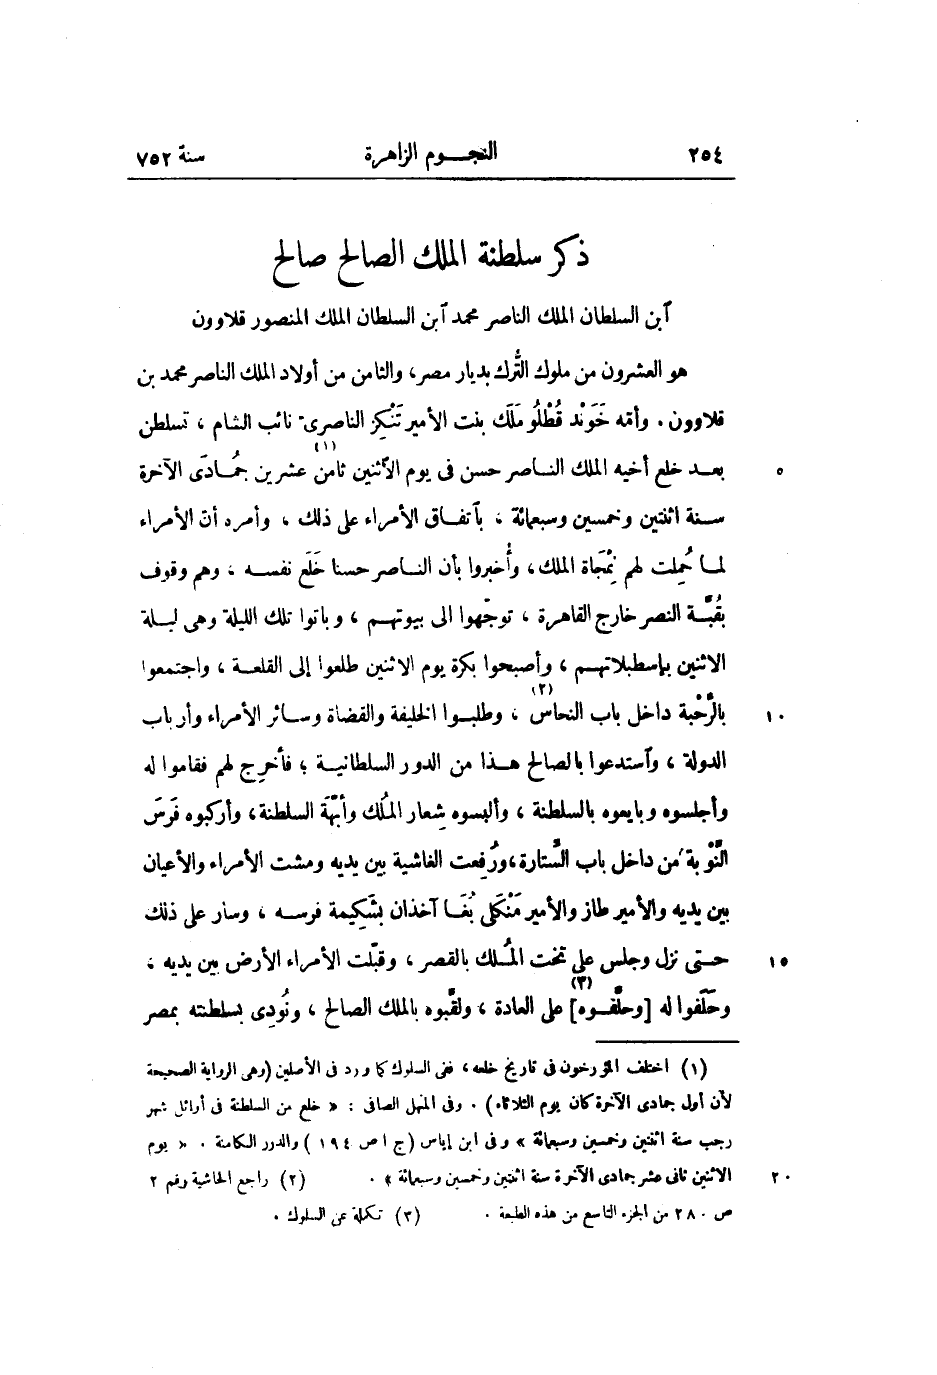 ٢٥٤ النجـوم الزاهرة سنة ٧٥٢
ذكر سلطنة الملك الصالح صالح
آبن السلطان الملك الناصر محمد آبن السلطان الملك المنصور قلاوون
هو العشرون من ملوك التُّرك بديار مصر، والثامن من أولاد الملك الناصر محمد بن
قلاوون. وأمّه خَوَنْد قُطْلُو مَلَك بنت الأمير تَنْكِز الناصرى نائب الشام، تسلطن
بعـد خلع أخيه الملك النـاصر حسن فى يوم الآثنين ثامن عشرين (١) جُمَادَى الآخرة ٥
سـنة اثنتين وخمسين وسبعمائة، بآتفـاق الأمراء على ذلك، وأمره أنّ الأمراء
لمـا حُملت لهم نِمْجَاة الملك، وأُخبروا بأن النـاصر حسنا خَلَع نفسـه، وهم وقوف
بقُبّـة النصر خارج القاهرة، توجّهوا الى بيوتهـم، وباتوا تلك الليلة وهى ليـلة
الاثنين بإسطبلاتهـم، وأصبحوا بكرة يوم الاثنين طلعوا إلى القلعـة، واجتمعوا
بالرَّحْبة داخل باب النحاس (٢)، وطلبـوا الخليفة والقضاة وسـائر الأمراء وأرباب ١٠
الدولة، وآستدعوا بالصالح هـذا من الدور السلطانيـة؛ فأُخرِج لهم فقاموا له
وأجلسوه وبايعوه بالسلطنة، وألبسوه شِعار المُلك وأُبّهَة السلطنة، وأركبوه فَرَسَ
النَّوْبة من داخل باب السِّتارة، ورُفِعت الغاشية بين يديه ومشت الأمراء والأعيان
بين يديه والأمير طاز والأمير مَنْكَلى بُغَـا آخذان بشَكِيمة فرسـه، وسار على ذلك
حـتى نزل وجلس على تخت المُـلك بالقصر، وقبّلت الأمراء الأرض بين يديه، ١٥
وحَلَفوا له [وحلّفـوه] (٣) على العادة، ولقّبوه بالملك الصالح، ونُودِى بسلطنته بمصر
(١) اختلف المؤرخون فى تاريخ خلعه، ففى السلوك كما ورد فى الأصلين (وهى الرواية الصحيحة
لأن أول جمادى الآخرة كان يوم الثلاثاء). وفى المنهل الصافى: « خلع من السلطنة فى أوائل شهر
رجب سنة اثنتين وخمسين وسبعمائة » وفى ابن إياس (ج ١ ص ١٩٤) والدرر الكامنة. « يوم
الاثنين ثانى عشر جمادى الآخرة سنة اثنتين وخمسين وسبعمائة ». (٢) راجع الحاشية رقم ٢ ٢٠
ص ٢٨٠ من الجزء التاسع من هذه الطبعة. (٣) تكملة عن السلوك.